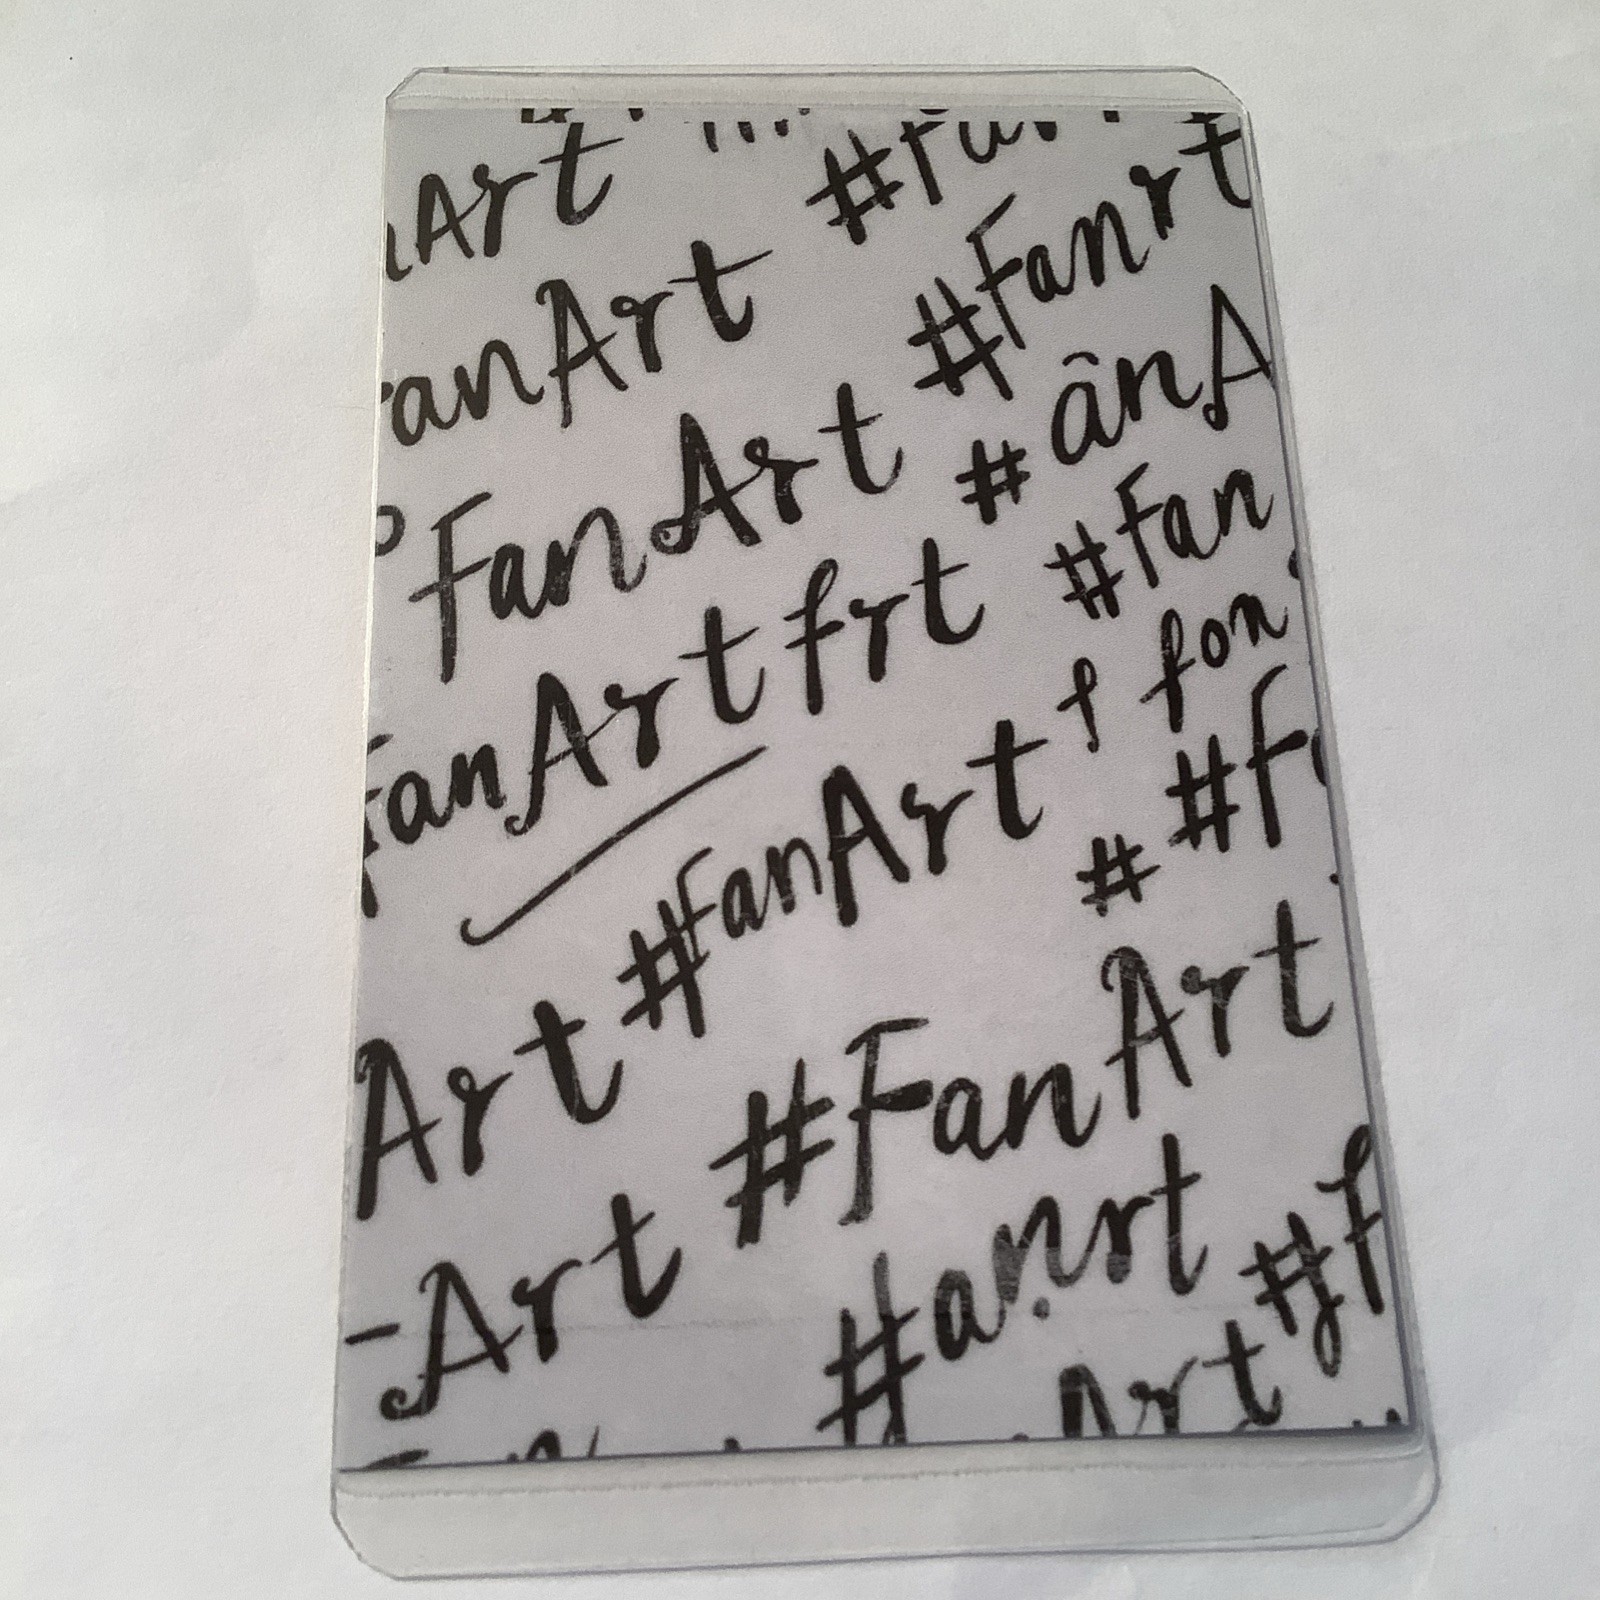 Art
#Fan
anArt
#Fanrt
FanArt
#ânA
FanArt frt
#Fan
f fon
#FanArt
##F
Art
#FanArt
-Art
#anrt
#F
Art